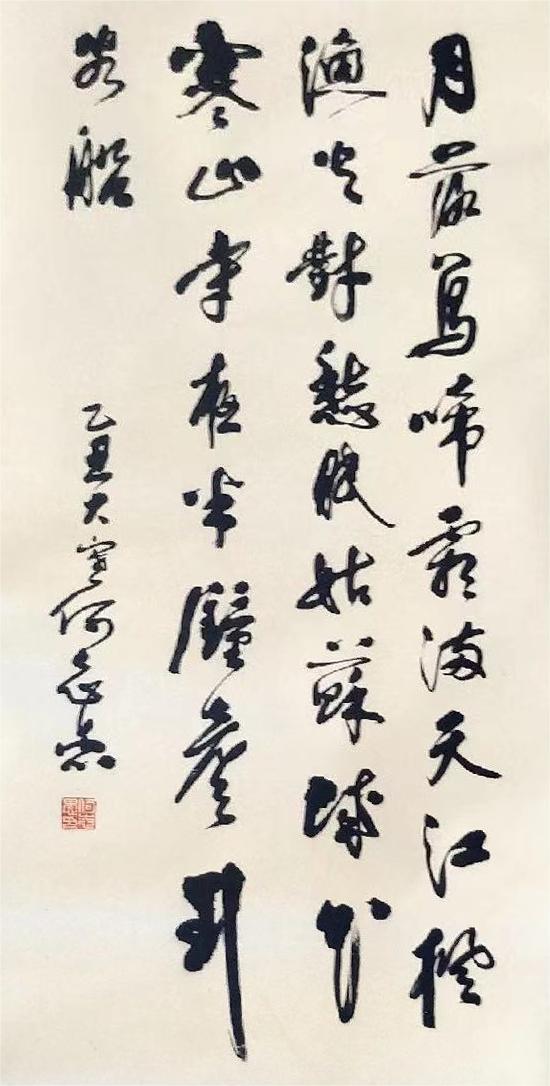 月落烏啼霜滿天江楓
漁火對愁眠姑蘇城外
寒山寺夜半鐘聲到
客船
乙丑大寒何